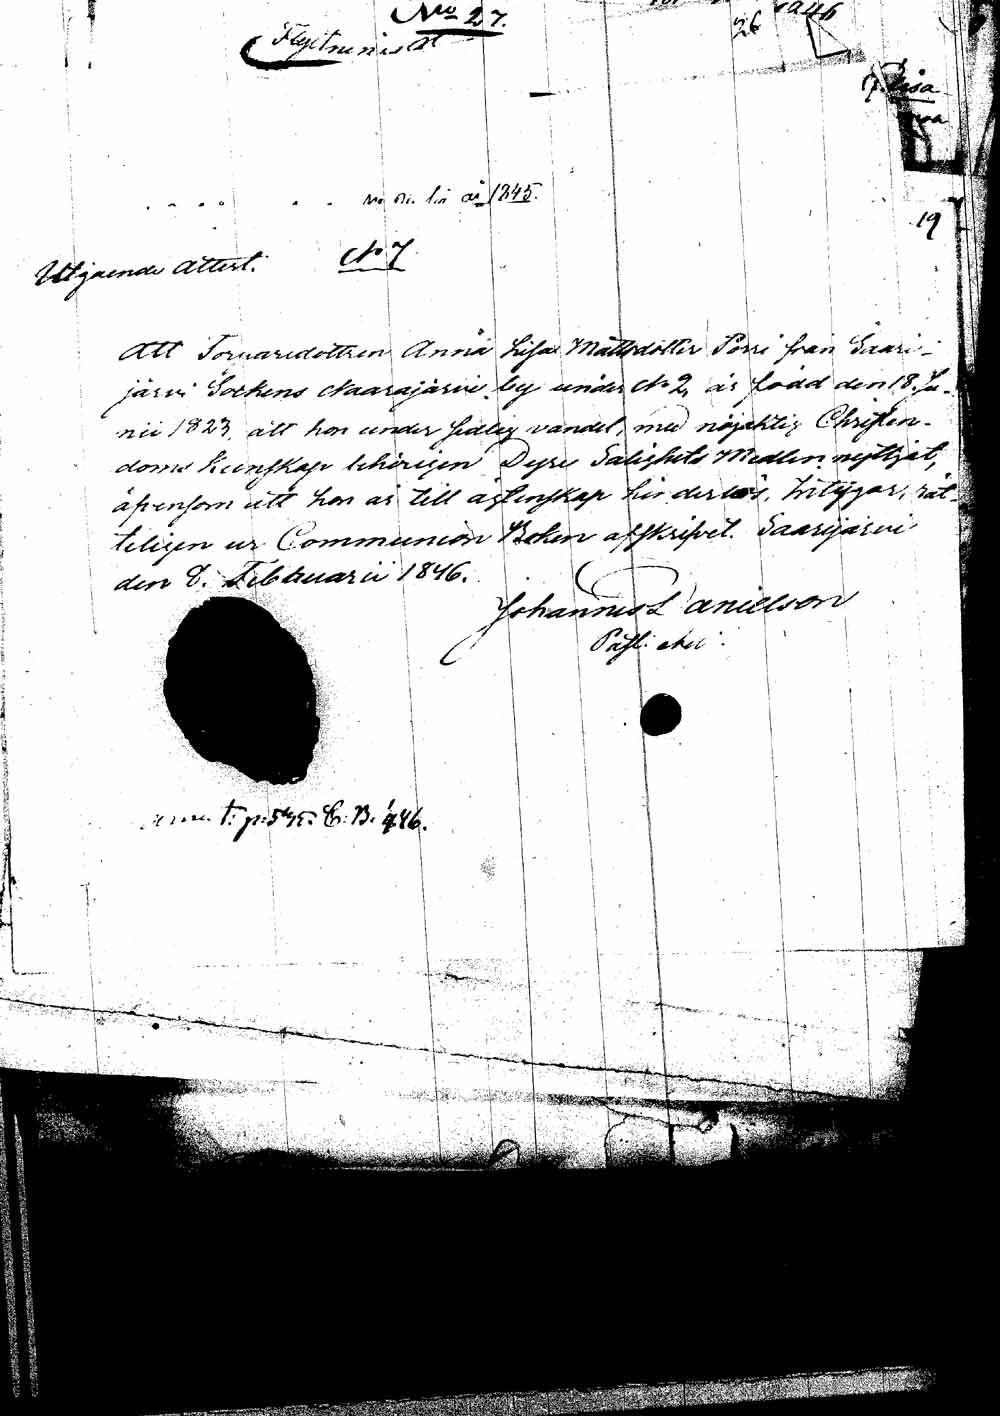 No 27.
Flyttnings
26 1846
Lisa
år 1845.
19
Utgående Attest. No 7
Att Torparedottren Anna Lisa Mattsdotter Porri från Saari-
järvi Sockens Naarajärvi by under No 2, är född den 18. Ju-
nii 1823, att hon under sedlig vandel, med nöjaktig Christen-
doms kunskap behörigen Dyre Salighets Medlen nyttjat,
äfvensom att hon är till ägtenskap hinderslös, betygar, rät-
teligen ur Communion Boken afskrifvet. Saarijärvi
den 8. Februarii 1846.
Johannes Danielson
Past:
p: 545. C. B. 446.